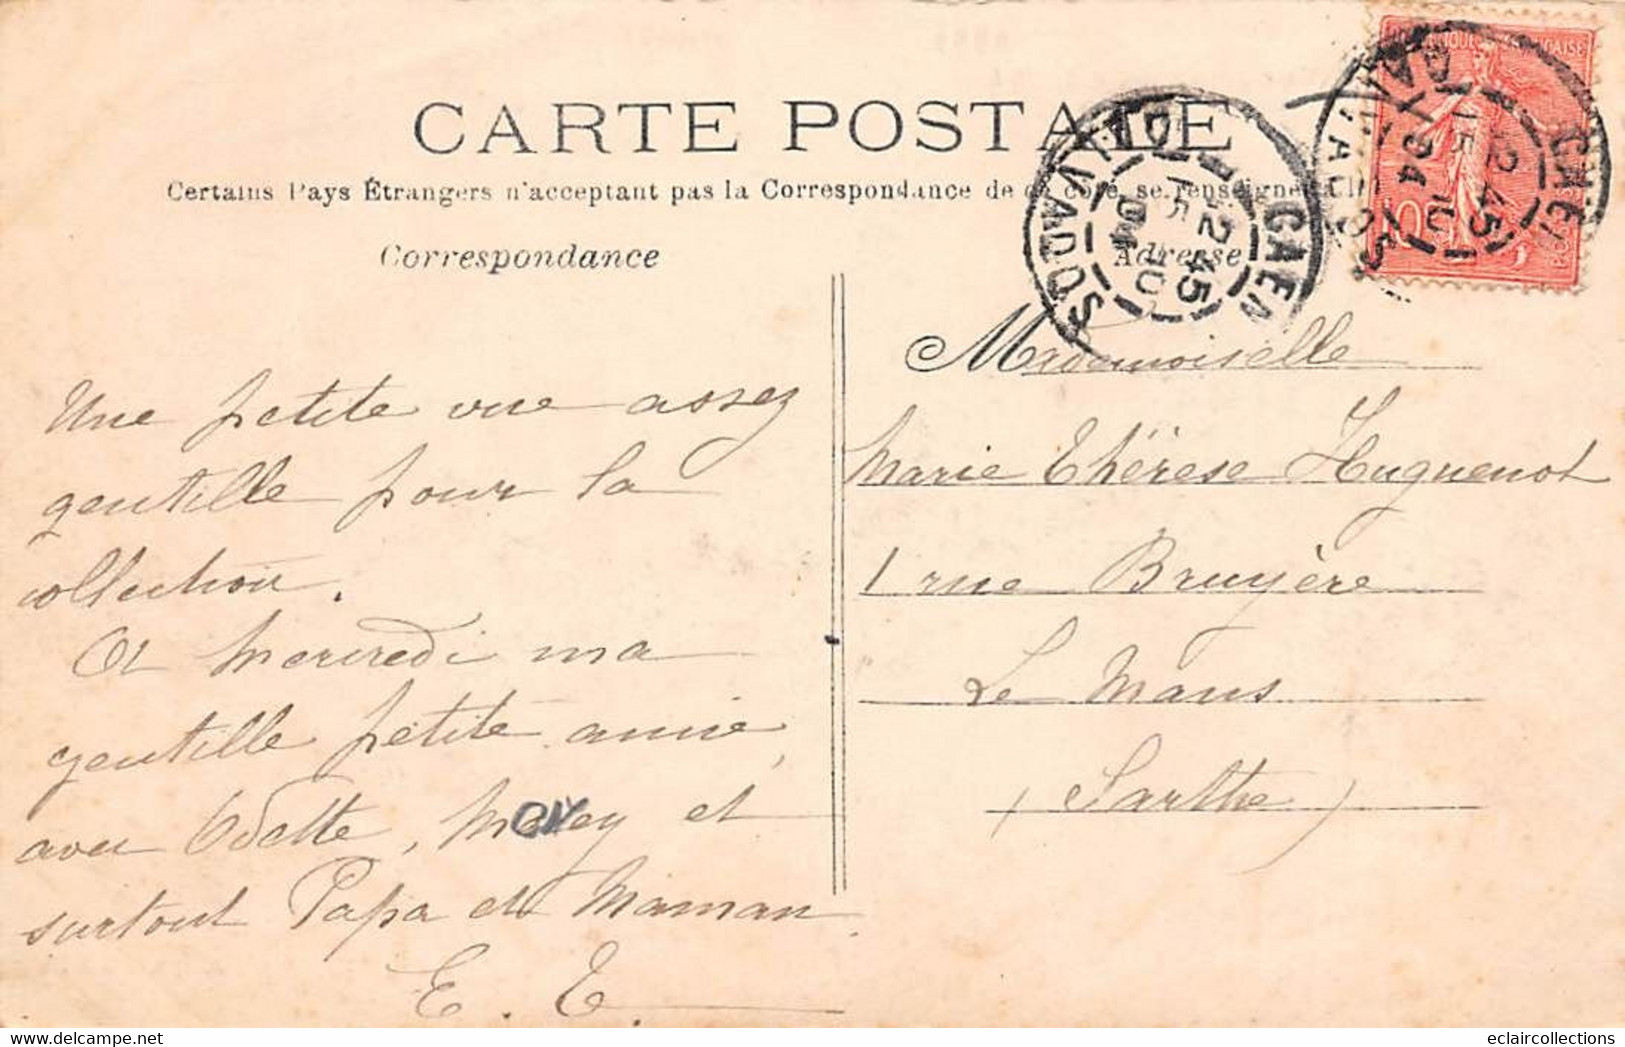 CARTE POSTALE
Certains Pays Étrangers n'acceptant pas la Correspondance de ce côté, se renseigner
Correspondance
Adresse
CAEN
12 45
15 10
04
CALVADOS
CAEN
12 45
15 10
04
CALVADOS
10
Mademoiselle
Marie Thérèse Huguenot
1 rue Bruyère
Le Mans
(Sarthe)
Une petite vue assez
gentille pour la
collection.
A Mercredi ma
gentille petite amie,
avec Odette, et
surtout Papa et Maman
E. T.
eclaircollections
www.delcampe.net